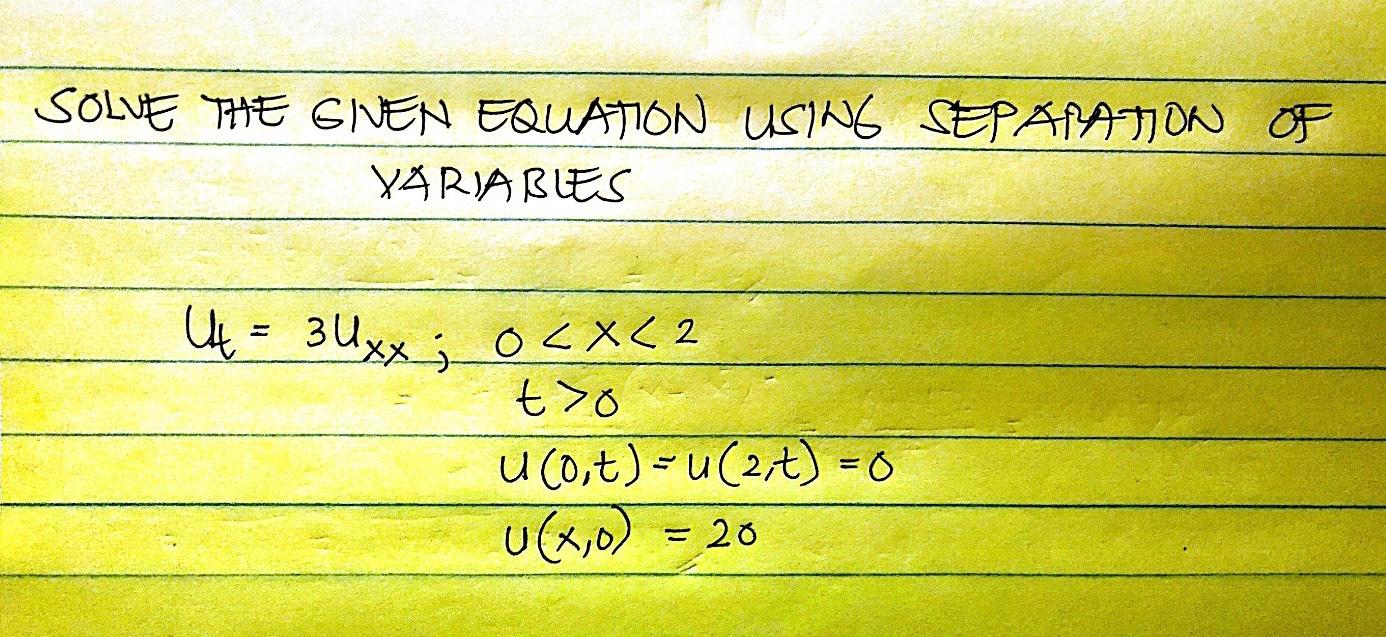 SOLVE THE GIVEN EQUATION USING SEPARATION OF
VARIABLES
Ut = 3Uxx ; 0 < x < 2
t > 0
u(0,t) = u(2,t) = 0
u(x,0) = 20